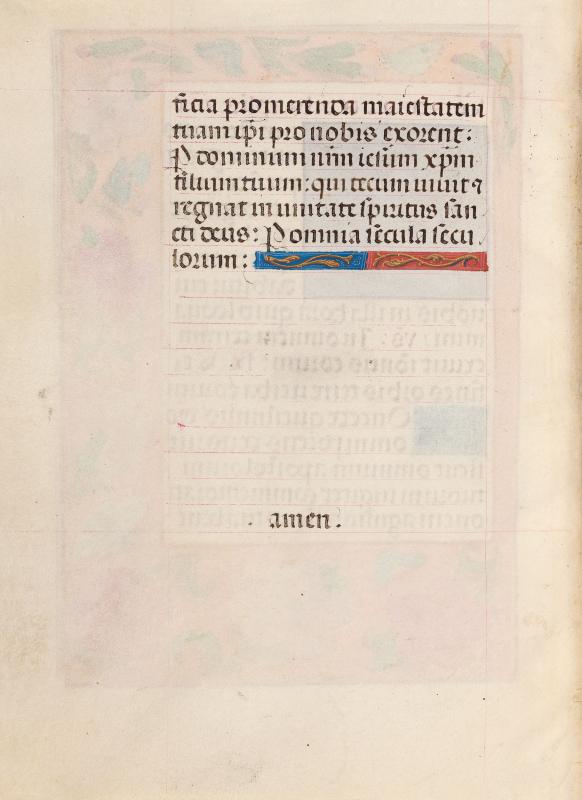 ficia promerenda maiestatem
tuam ip̄i pro nobis exorent:
P dominum nr̄m iesum xp̄m
filium tuum: qui tecum uiuit ⁊
regnat in unitate spiritus san
cti deus: P omnia secula secu
lorum:
amen.